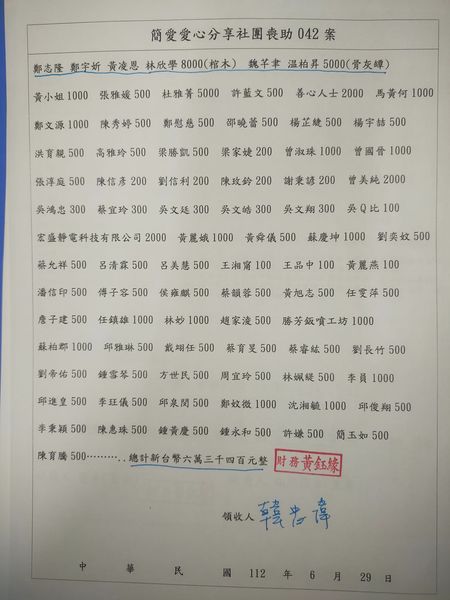 簡愛愛心分享社團喪助 042 案
鄭志隆 鄭宇妡 黃凌恩 林欣學 8000(棺木) 魏芊聿 温柏昇 5000(骨灰罈)
黃小姐 1000 張雅媛 500 杜雅菁 5000 許藍文 500 善心人士 2000 馬黃何 1000
鄭文源 1000 陳秀婷 500 鄭慰慈 500 邵曉蕾 500 楊芷緁 500 楊宇喆 500
洪育親 500 高雅玲 500 梁勝凱 500 梁家婕 200 曾淑珠 1000 曾國晉 1000
張淳庭 500 陳信彥 200 劉信利 200 陳玫鈴 200 謝秉諺 200 曾美純 2000
吳鴻忠 300 蔡宜玲 300 吳文廷 300 吳文皓 300 吳文翔 300 吳Q比 100
宏盛靜電科技有限公司 2000 黃麗娥 1000 黃舜儀 500 蘇慶坤 1000 劉奕妏 500
蔡允祥 500 呂清霖 500 呂美慧 500 王湘甯 100 王品中 100 黃麗燕 100
潘信印 500 傅子容 500 侯雍麒 500 蔡韻蓉 500 黃旭志 500 任雯萍 500
詹子建 500 任鎮雄 1000 林妙 1000 趙家淩 500 勝芳鈑噴工坊 1000
蘇柏郡 1000 邱雅琳 500 戴翊任 500 蔡育旻 500 蔡睿紘 500 劉長竹 500
劉帝佑 500 鍾雪琴 500 方世民 500 周宜玲 500 林姵緹 500 李員 1000
邱進皇 500 李玨儀 500 邱泉閔 500 鄭妏微 1000 沈湘毓 1000 邱俊翔 500
李秉穎 500 陳惠珠 500 鍾黃慶 500 鍾永和 500 許嫌 500 簡玉如 500
陳育騰 500………..總計新台幣六萬三千四百元整 財務黃鈺緣
領收人 韓忠諱
中 華 民 國 112 年 6 月 29 日